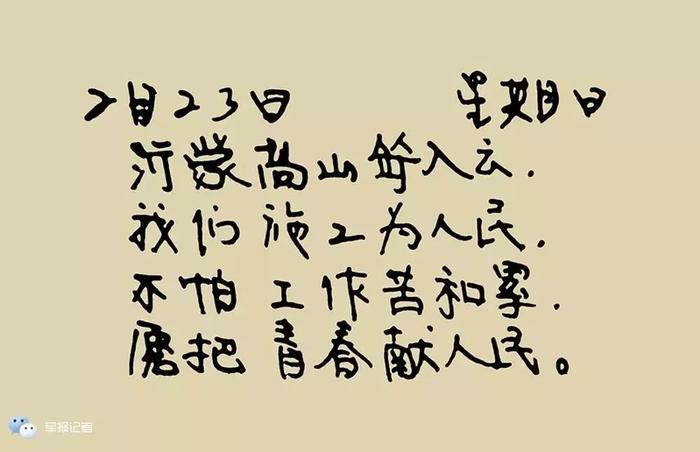 2月23日 星期日
沂蒙高山耸入云.
我们施工为人民.
不怕工作苦和累.
愿把青春献人民。
早报记者